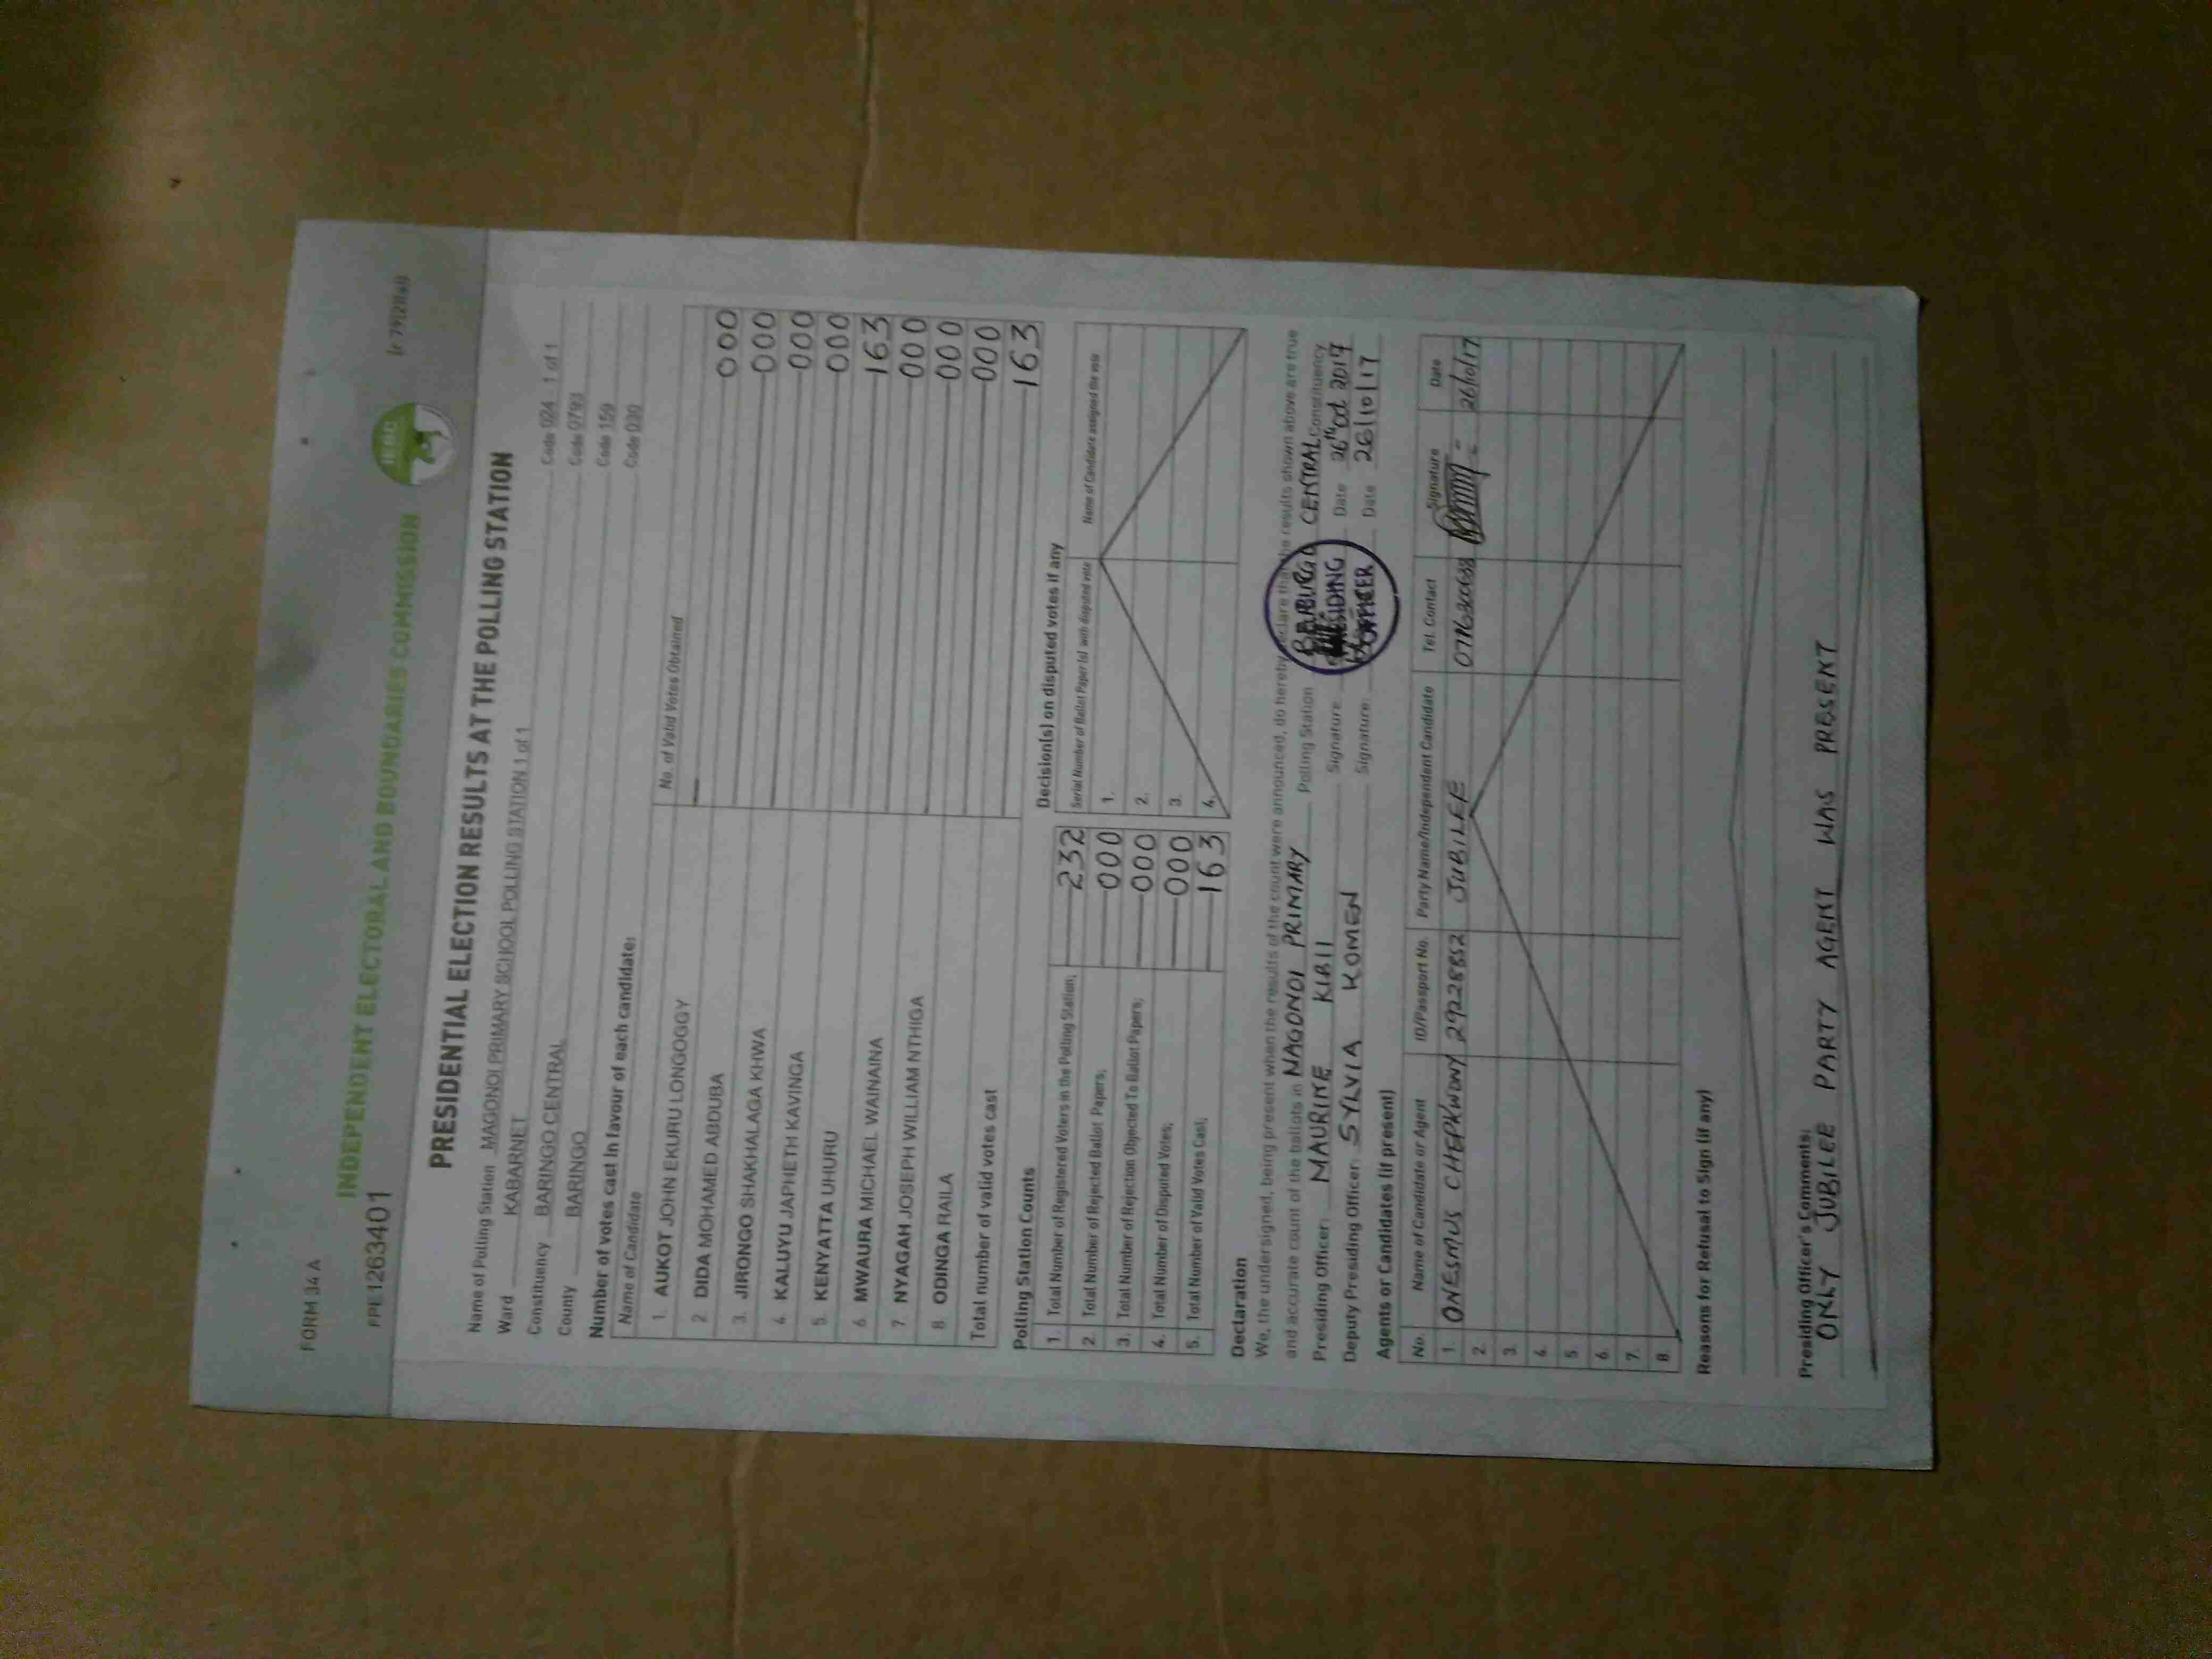 FORM 34 A
PPE1263401
INDEPENDENT ELECTORAL AND BOUNDARIES COMMISSION
IEBC
PRESIDENTIAL ELECTION RESULTS AT THE POLLING STATION
Name of Polling Station MAGONOI PRIMARY SCHOOL POLLING STATION 1 of 1 Code 024 1 of 1
Ward KABARNET Code 0793
Constituency BARINGO CENTRAL Code 159
County BARINGO Code 030
Number of votes cast in favour of each candidate:
Name of Candidate No. of Valid Votes Obtained
1. AUKOT JOHN EKURU LONGOGGY 000
2 DIDA MOHAMED ABDUBA 000
3. JIRONGO SHAKHALAGA KHWA 000
4. KALUYU JAPHETH KAVINGA 000
5. KENYATTA UHURU 163
6 MWAURA MICHAEL WAINAINA 000
7. NYAGAH JOSEPH WILLIAM NTHIGA 000
8. ODINGA RAILA 000
Total number of valid votes cast 163
Polling Station Counts
1. Total Number of Registered Voters in the Polling Station; 232
2. Total Number of Rejected Ballot Papers; 000
3. Total Number of Rejection Objected To Ballot Papers; 000
4. Total Number of Disputed Votes; 000
5. Total Number of Valid Votes Cast; 163
Decision(s) on disputed votes if any
Serial Number of Ballot Paper (s) with disputed vote Name of Candidate assigned the vote
1.
2.
3.
4.
Declaration
We, the undersigned, being present when the results of the count were announced, do hereby declare that the results shown above are true
and accurate count of the ballots in MAGONOI PRIMARY Polling Station BARINGO CENTRAL Constituency
Presiding Officer: MAURINE KIBII Signature Date 26th Oct 2017
Deputy Presiding Officer: SYLVIA KOMEN Signature: Date 26/10/17
PRESIDING OFFICER
Agents or Candidates (if present)
No. Name of Candidate or Agent ID/Passport No. Party Name/Independent Candidate Tel. Contact Signature Date
1. ONESMUS CHEPKWONY 29228852 JUBILEE 26/10/17
2.
3.
4.
5.
6.
7.
8.
Reasons for Refusal to Sign (if any)
Presiding Officer's Comments:
ONLY JUBILEE PARTY AGENT WAS PRESENT